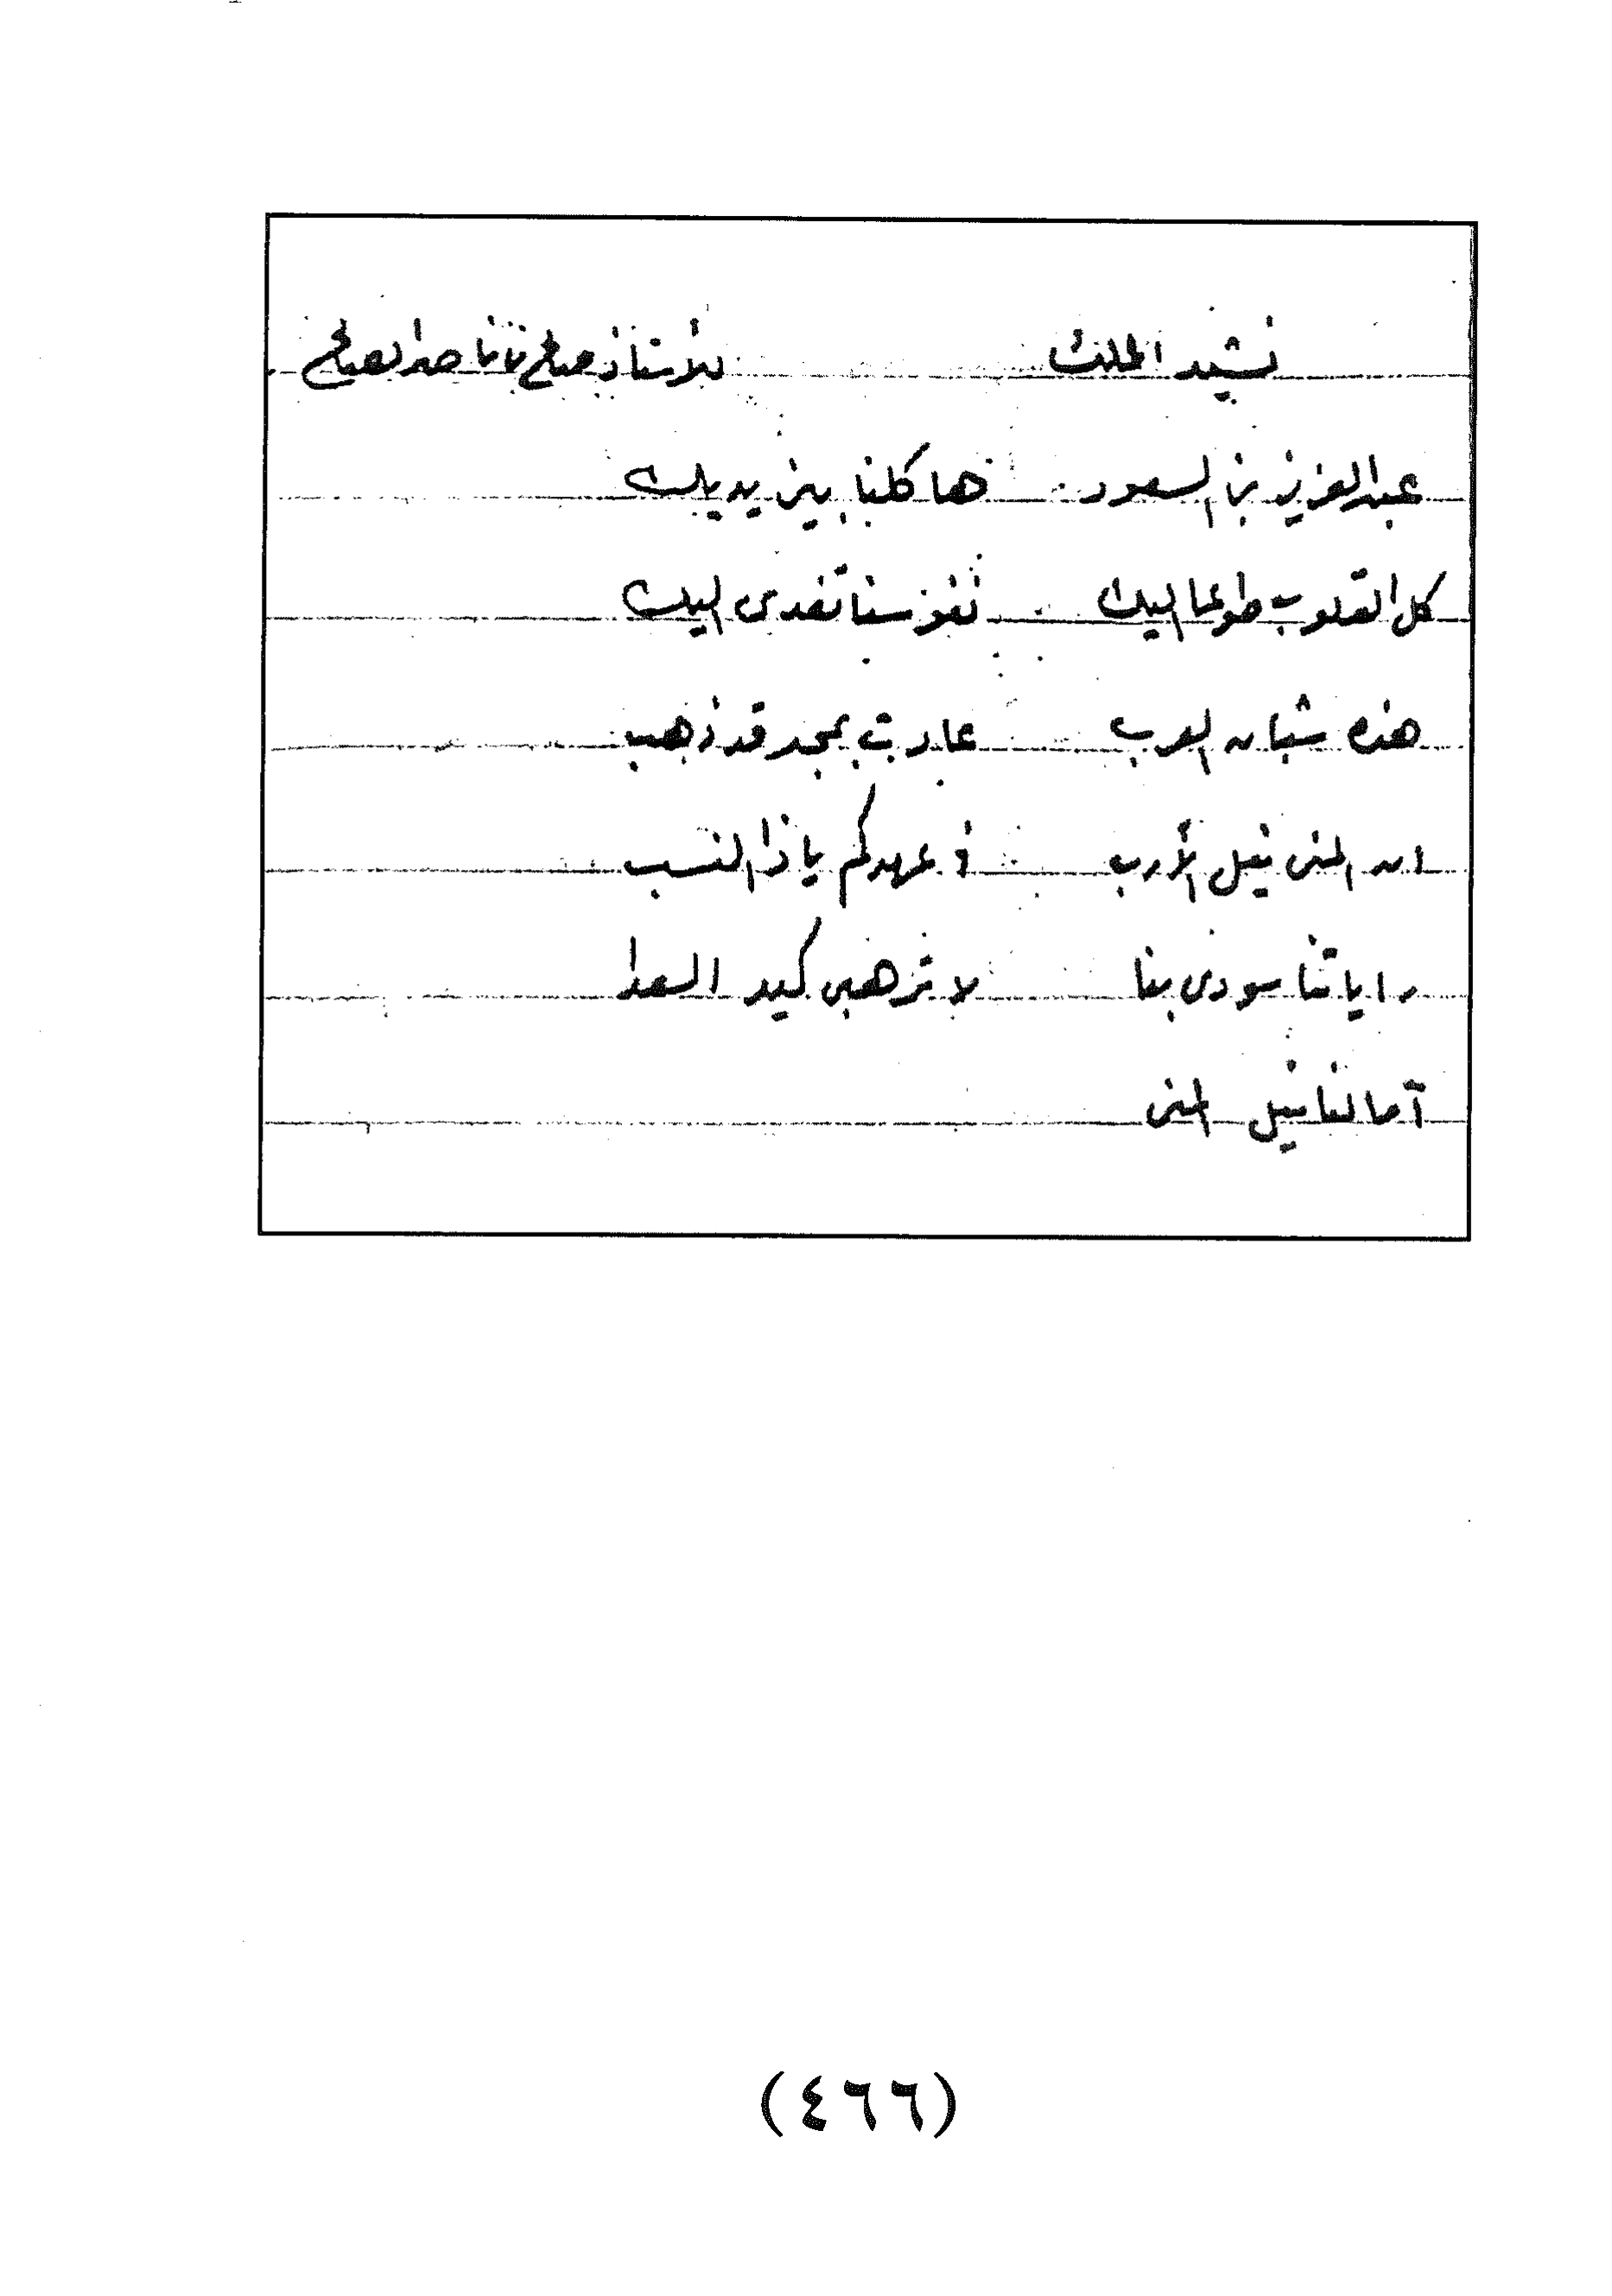 نشيد الملك للأستاذ صالح بن ناصر الصالح
عبد العزيز بن السعود ها كلنا بين يديك
كل القلوب طوعا اليك نفوسنا تفدى اليك
هذه شبان العرب عادت بمجد قد ذهب
ان المنى نيل الأرب في عهدكم يا ذا النسب
راياتنا سودى بنا لا ترهبى كيد العدا
آمالنا نيل المنى
(٤٦٦)